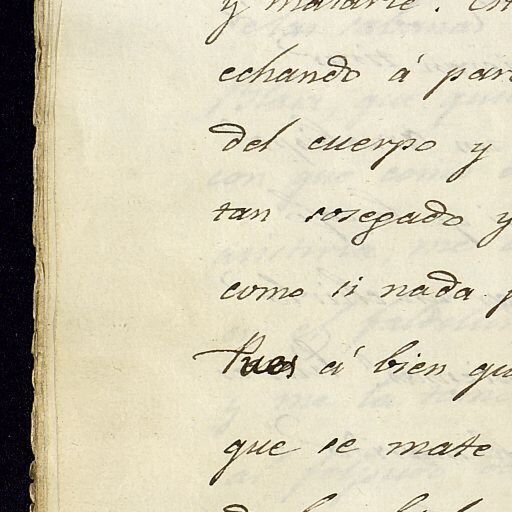 y matarte.
echando á
del cuerpo y
tan sosegado y
como si nada
Pues á bien
que se mate